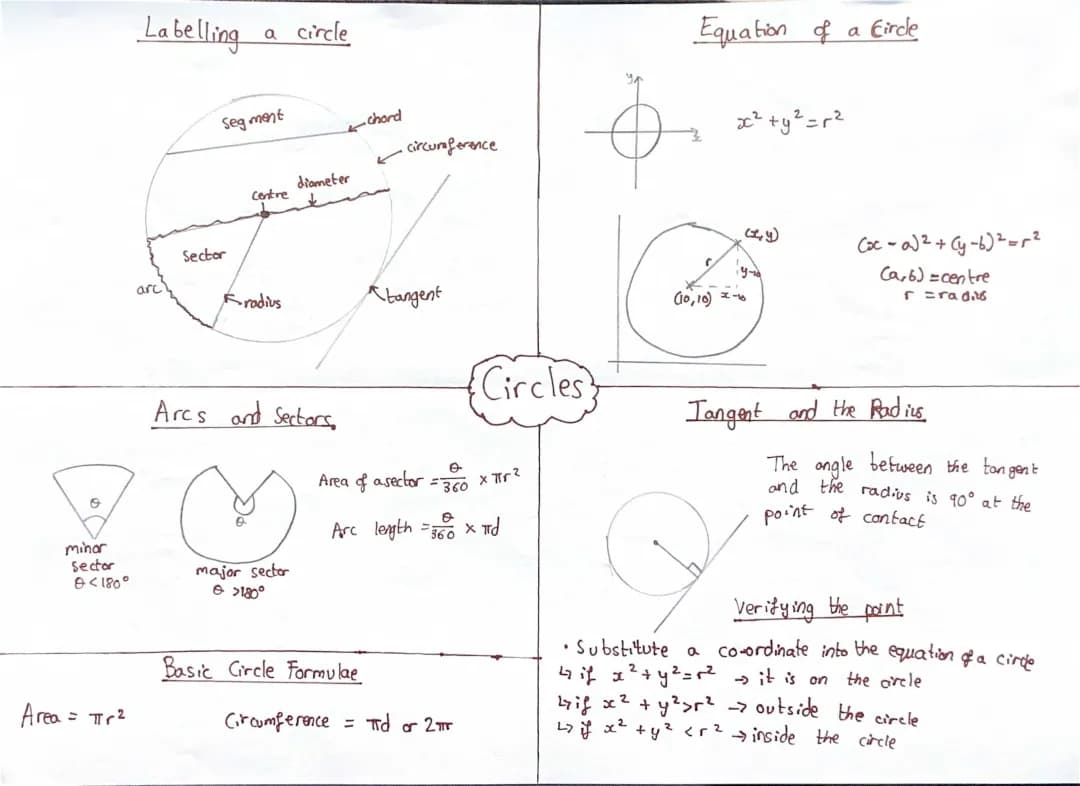 Labelling a circle
segment
chord
circumference
centre
diameter
sector
arc
radius
tangent
Equation of a Circle
y
x
x² + y² = r²
(x, y)
r
y-10
(10, 10)
x-10
(x - a)² + (y - b)² = r²
(a, b) = centre
r = radius
Circles
Arcs and Sectors
θ
minor
sector
θ < 180°
θ
major sector
θ > 180°
Area of a sector = θ/360 × πr²
Arc length = θ/360 × πd
Basic Circle Formulae
Area = πr²
Circumference = πd or 2πr
Tangent and the Radius
The angle between the tangent
and the radius is 90° at the
point of contact
Verifying the point
• Substitute a co-ordinate into the equation of a circle
↳ if x² + y² = r² → it is on the circle
↳ if x² + y² > r² → outside the circle
↳ if x² + y² < r² → inside the circle